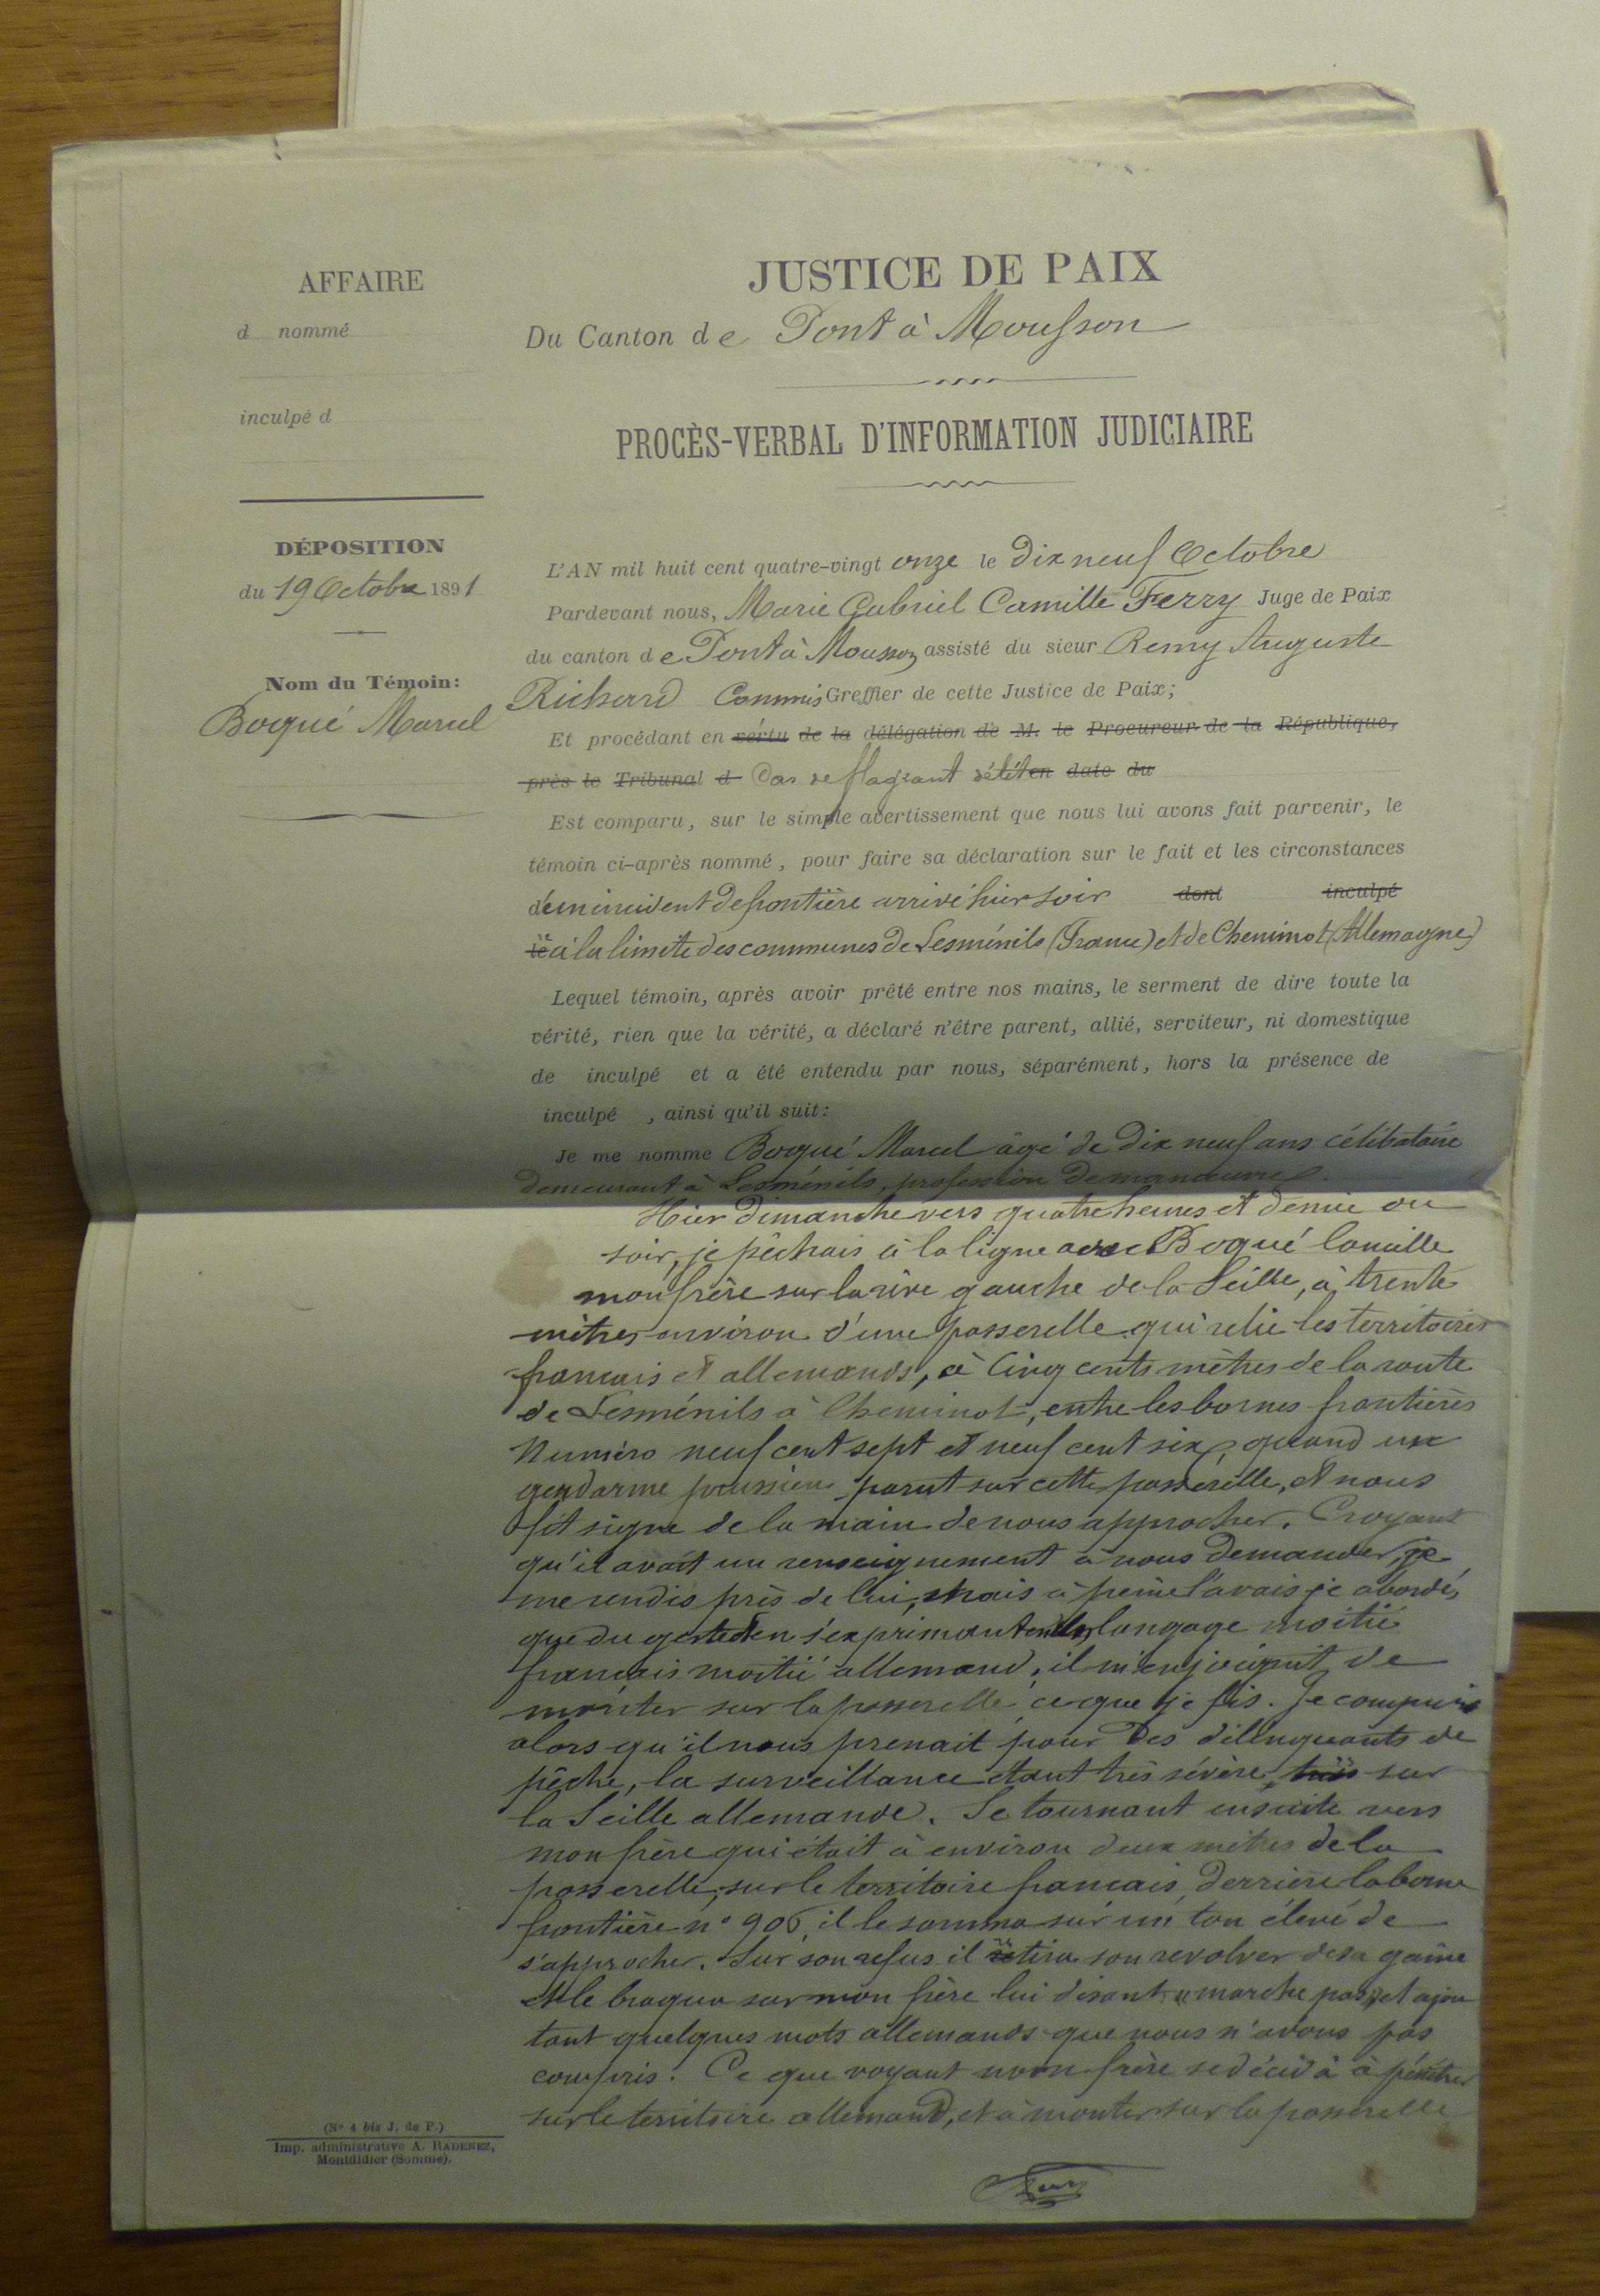 AFFAIRE
d nommé
inculpé d
DÉPOSITION
du 19 Octobre 1891
Nom du Témoin:
Boqué Marcel
(Nº 4 bis J. de P.)
Imp. administrative A. RADENEZ,
Montdidier (Somme).
JUSTICE DE PAIX
Du Canton de Pont à Mousson
PROCÈS-VERBAL D'INFORMATION JUDICIAIRE
L'AN mil huit cent quatre-vingt onze le dix neuf Octobre
Pardevant nous, Marie Gabriel Camille Ferry Juge de Paix
du canton de Pont à Mousson assisté du sieur Remy Auguste
Richard Commis Greffier de cette Justice de Paix;
Et procédant en vertu de la délégation de M. le Procureur de la République,
près le Tribunal d Cas de flagrant délit en date du
Est comparu, sur le simple avertissement que nous lui avons fait parvenir, le
témoin ci-après nommé, pour faire sa déclaration sur le fait et les circonstances
d'un incident de frontière arrivé hier soir dont inculpé
à la limite des communes de Lesménils (France) et de Cheminot (Allemagne)
Lequel témoin, après avoir prêté entre nos mains, le serment de dire toute la
vérité, rien que la vérité, a déclaré n'être parent, allié, serviteur, ni domestique
de inculpé et a été entendu par nous, séparément, hors la présence de
inculpé , ainsi qu'il suit:
Je me nomme Boqué Marcel âgé de dix neuf ans célibataire
demeurant à Lesménils, profession de manœuvre.
Hier dimanche vers quatre heures et demie du
soir, je pêchais à la ligne avec Boqué Camille
mon frère sur la rive gauche de la Seille, à trente
mètres environ d'une passerelle qui relie les territoires
français et allemands, à Cinq cents mètres de la route
de Lesménils à Cheminot, entre les bornes frontières
Numéro neuf cent sept et neuf cent six, quand un
gendarme prussien parut sur cette passerelle, et nous
fit signe de la main de nous approcher. Croyant
qu'il avait un renseignement à nous demander, je
me rendis près de lui, mais à peine l'avais je abordé,
que du geste et en s'exprimant en un langage moitié
français moitié allemand, il m'enjoignit de
monter sur la passerelle, ce que je fis. Je compris
alors qu'il nous prenait pour des délinquants de
pêche, la surveillance étant très sévère sur
la Seille allemande. Se tournant ensuite vers
mon frère qui était à environ deux mètres de la
passerelle, sur le territoire français, derrière la borne
frontière nº 906, il le somma sur un ton élevé de
s'approcher. Sur son refus il tira son revolver de sa gaîne
et le braqua sur mon frère lui disant « marche pas » et ajou
tant quelques mots allemands que nous n'avons pas
compris. Ce que voyant mon frère se décida à pénétrer
sur le territoire allemand, et à monter sur la passerelle